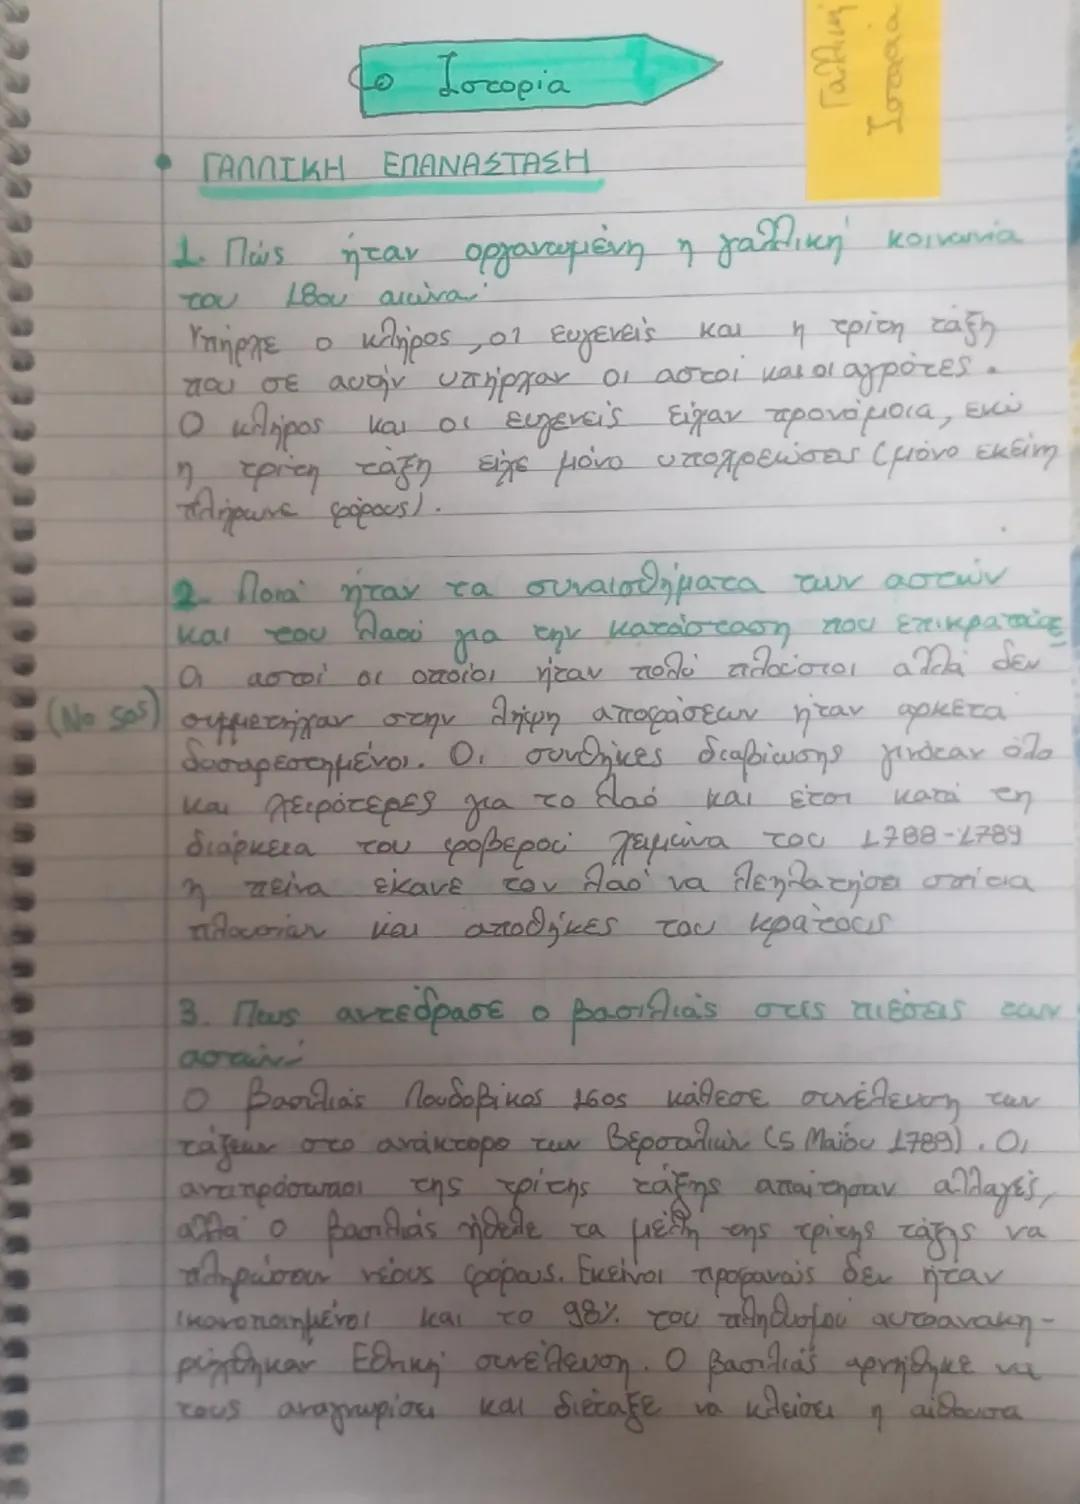 Ιστορία
Γαλλική
Ιστορία
• ΓΑΛΛΙΚΗ ΕΠΑΝΑΣΤΑΣΗ
1. Πώς ήταν οργανωμένη η γαλλική κοινωνία
του 18ου αιώνα;
Υπήρχε ο κλήρος, οι ευγενείς και η τρίτη τάξη
που σε αυτήν υπήρχαν οι αστοί και οι αγρότες.
Ο κλήρος και οι ευγενείς είχαν προνόμοια, ενώ
η τρίτη τάξη είχε μόνο υποχρεώσεις (μόνο εκείνη
πλήρωνε φόρους).
2. Ποιά ήταν τα συναισθήματα των αστών
και του λαού για την κατάσταση που επικρατούσε
Οι αστοί οι οποίοι ήταν πολύ πλούσιοι αλλά δεν
(No sos) συμμετήχαν στην λήψη αποφάσεων ήταν αρκετά
δυσαρεστημένοι. Οι συνθήκες διαβίωσης γινόταν όλο
και χειρότερες για το λαό και έτσι κατά τη
διάρκεια του φοβερού χειμώνα του 1788-1789
η πείνα έκανε τον λαό να λεηλατήσει σπίτια
πλουσίων και αποθήκες του κράτους
3. Πως αντέδρασε ο βασιλιάς στις πιέσεις των
αστών;
Ο βασιλιάς Λουδοβίκος 16ος κάθεσε συνέλευση των
τάξεων στο ανάκτορο των Βερσαλιών (5 Μαΐου 1789). Οι
αντιπρόσωποι της τρίτης τάξης απαίτησαν αλλαγές,
αλλά ο βασιλιάς ήθελε τα μέλη της τρίτης τάξης να
πληρώσουν νέους φόρους. Εκείνοι προφανώς δεν ήταν
ικανοποιημένοι και το 98% του πληθυσμού αυτοανακη-
ρύχθηκαν Εθνική συνέλευση. Ο βασιλιάς αρνήθηκε να
τους αναγνωρίσει και διέταξε να κλείσει η αίθουσα